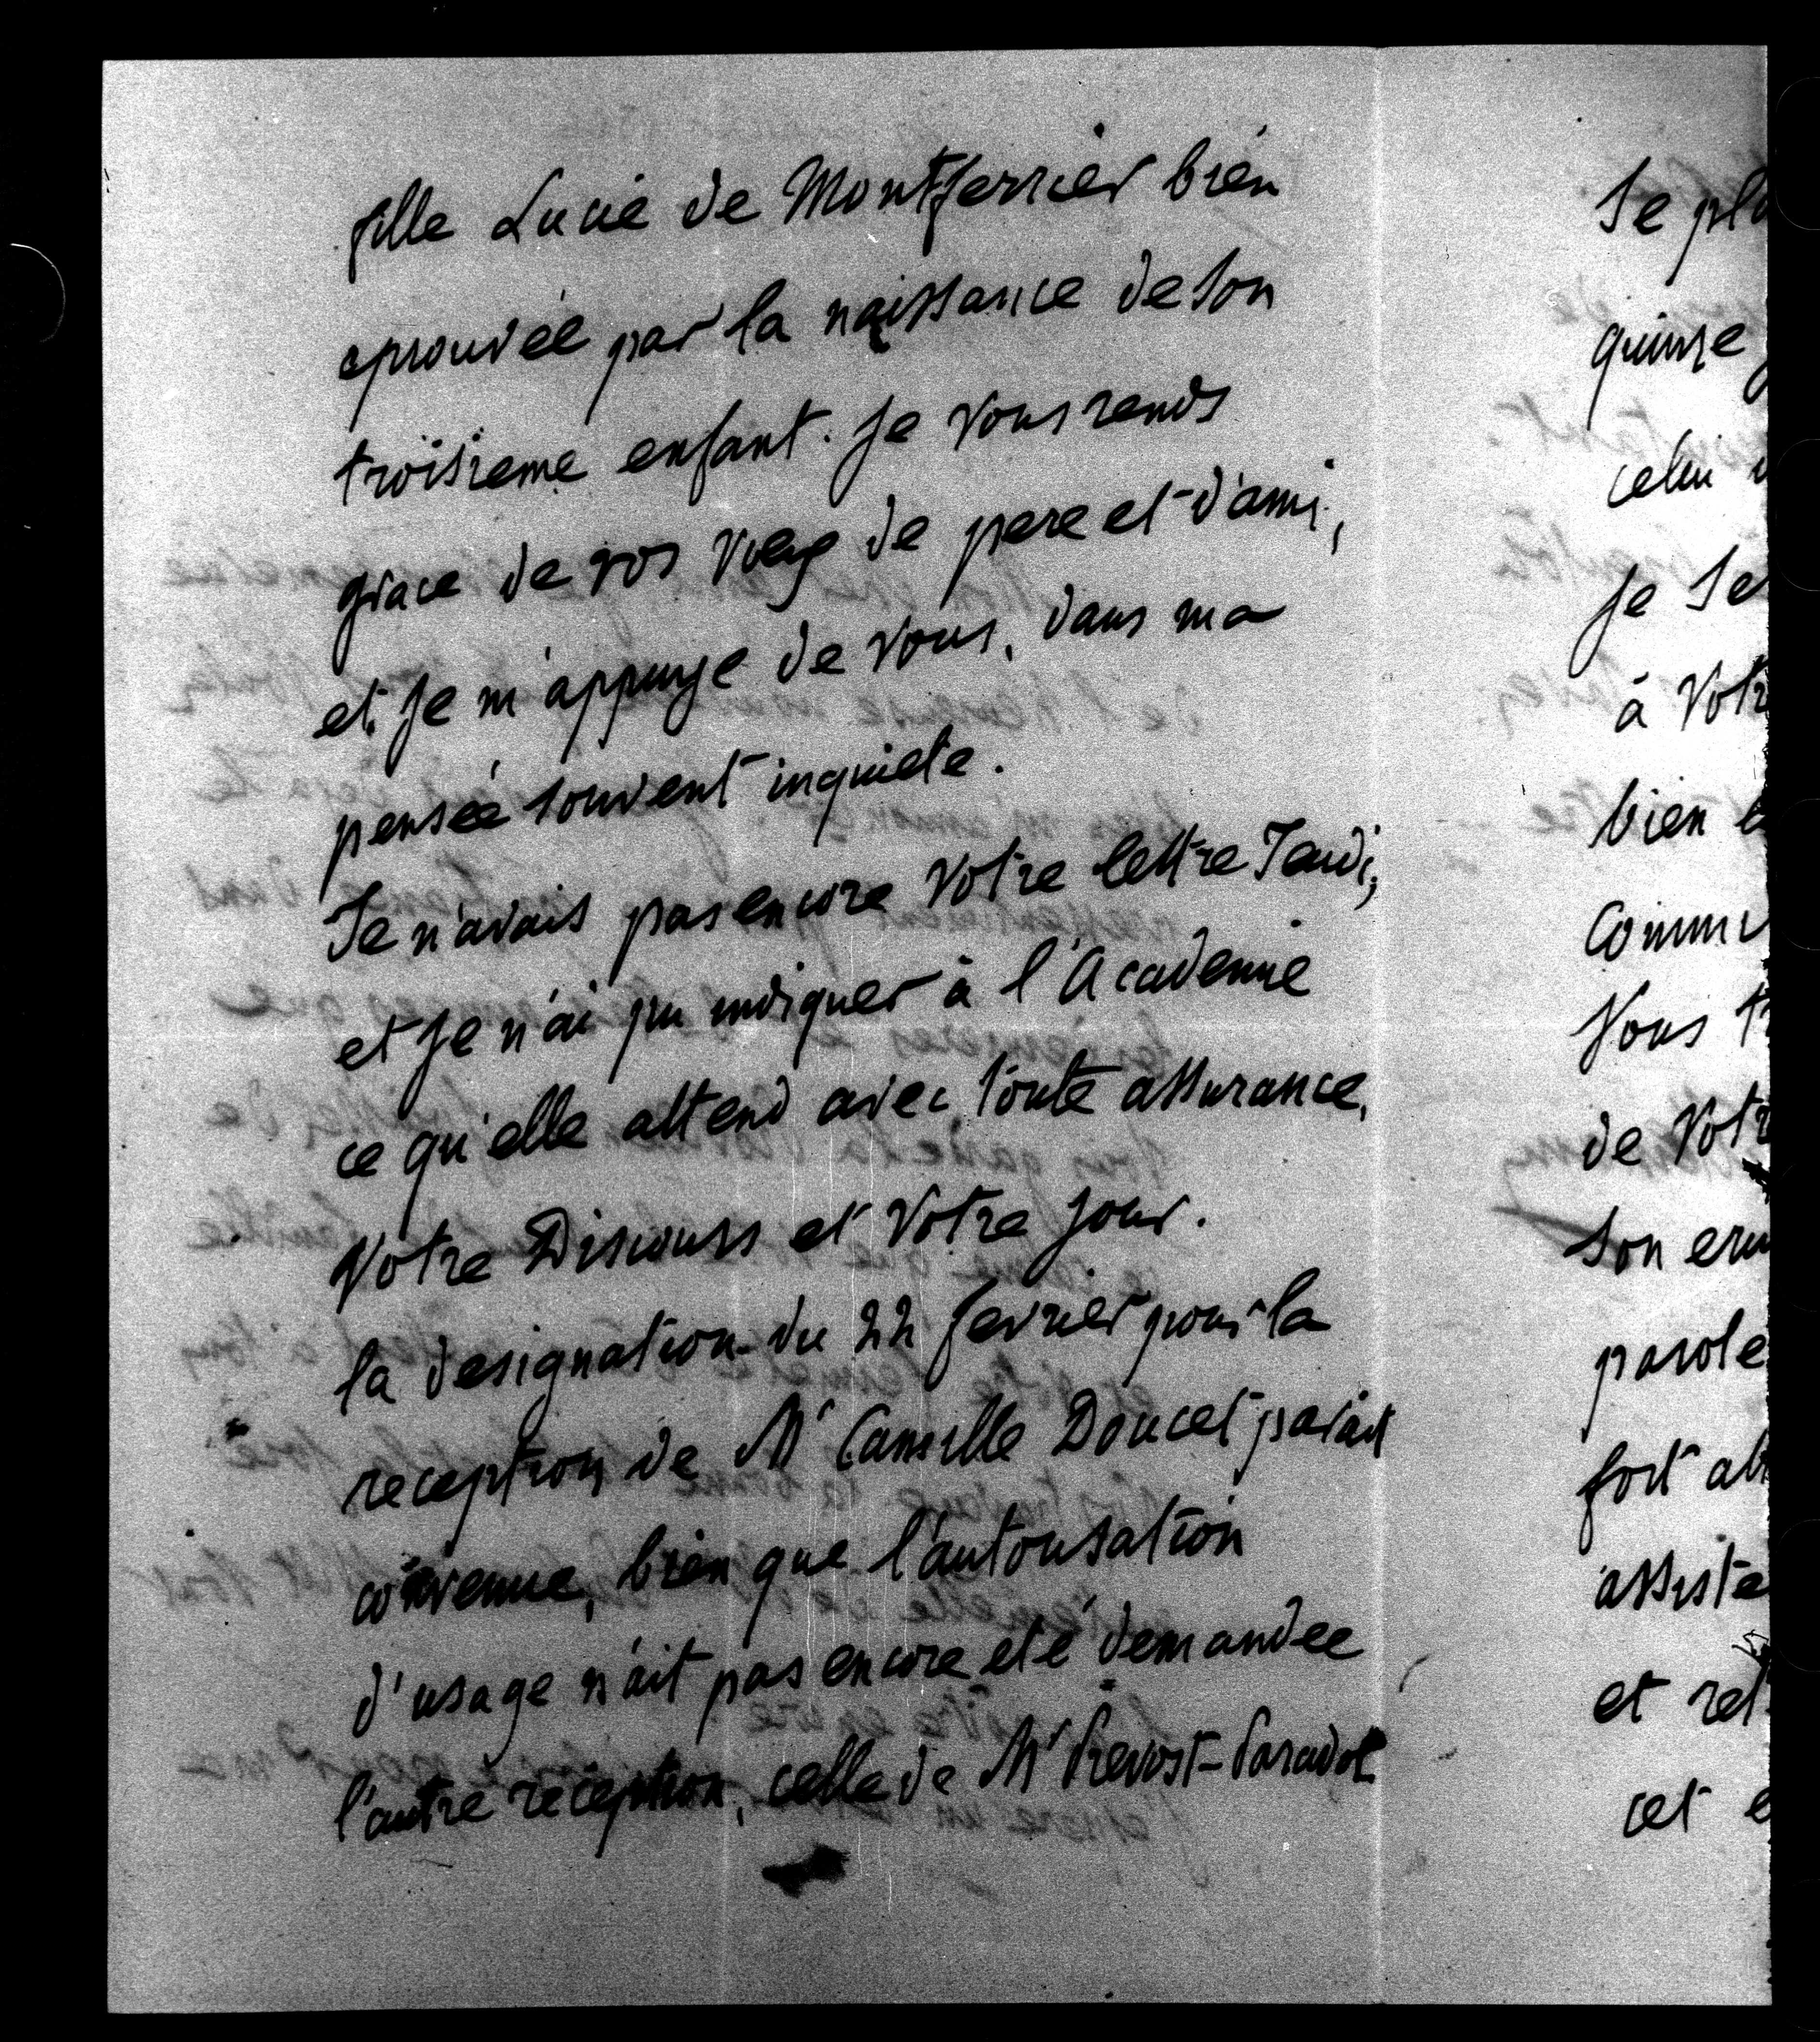 fille Lucie de Montferrier bien
eprouvée par la naissance de son
troisieme enfant. Je vous rends
grace de vos voeux de pere et d'ami,
et je m'appuye de vous, dans ma
pensée souvent inquiete.
Je n'avais pas encore votre lettre Jeudi;
et je n'ai pu indiquer à l'Academie
ce qu'elle attend avec toute assurance,
Votre Discours et Votre jour.
la designation du 22 fevrier pour la
reception de Mr Camille Doucet parait
convenue, bien que l'autorisation
d'usage n'ait pas encore été demandee
l'autre reception, celle de Mr Prevost-Paradol
Se
quinze
celui
je
à
bien
Vous
de
Son
parole
fort
et
cet